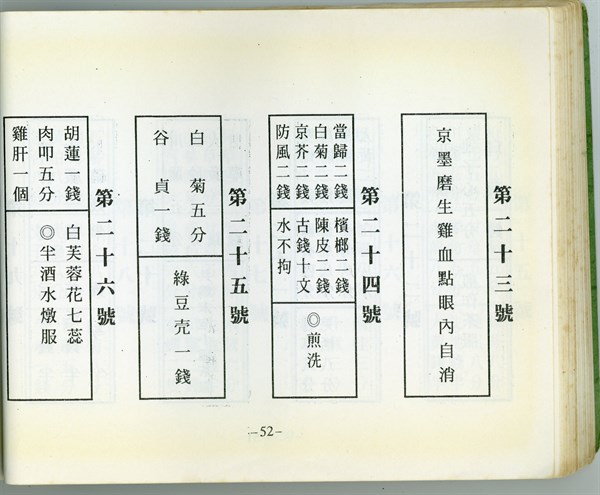 第二十三號
京墨磨生雞血點眼內自消
第二十四號
當歸二錢 檳榔二錢
白菊二錢 陳皮二錢
京芥二錢 古錢十文
防風二錢 水不拘
◎煎洗
第二十五號
白菊五分
谷貞一錢
綠豆壳一錢
第二十六號
胡蓮一錢 白芙蓉花七蕊
肉叩五分 ◎半酒水燉服
雞肝一個
—52—